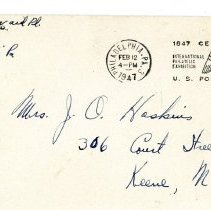 Pa
PHILADELPHIA, PA. 3
FEB 12
4-PM
1947
1847 CE
INTERNATIONAL
PHILATELIC
EXHIBITION
U. S. PO
Mrs. J. O. Haskins
306 Court Stree
Keene, N